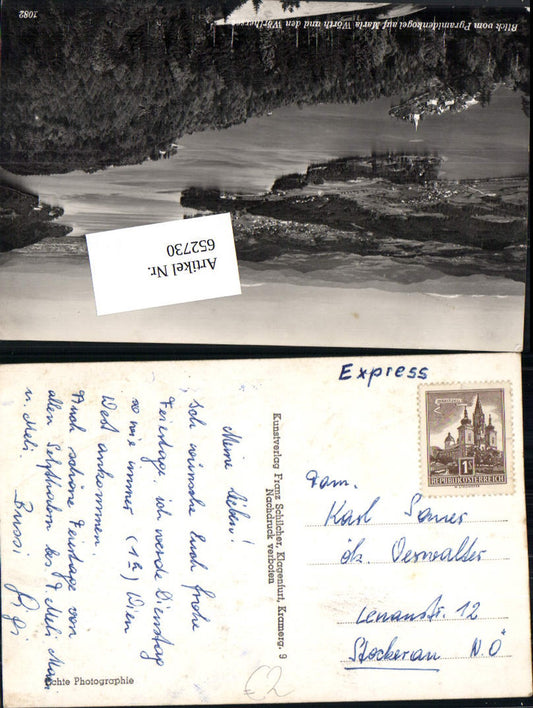 Blick vom Pyramidenkogel auf Maria Wörth und den Wörthersee
1082
Artikel Nr.
652730
Express
REPUBLIK ÖSTERREICH
1S
Kunstverlag Franz Schilcher, Klagenfurt, Kramerg. 9
Nachdruck verboten
Meine Lieben!
Ich wünsche Euch frohe
Feiertage ich werde Dienstag
so wie immer (1h) Wien
West ankommen.
Auch schöne Feiertage von
allen
u. Meli. Bussi
Fam.
Karl
Verwalter
Lenaustr. 12
Stockerau N.Ö
Echte Photographie
€2